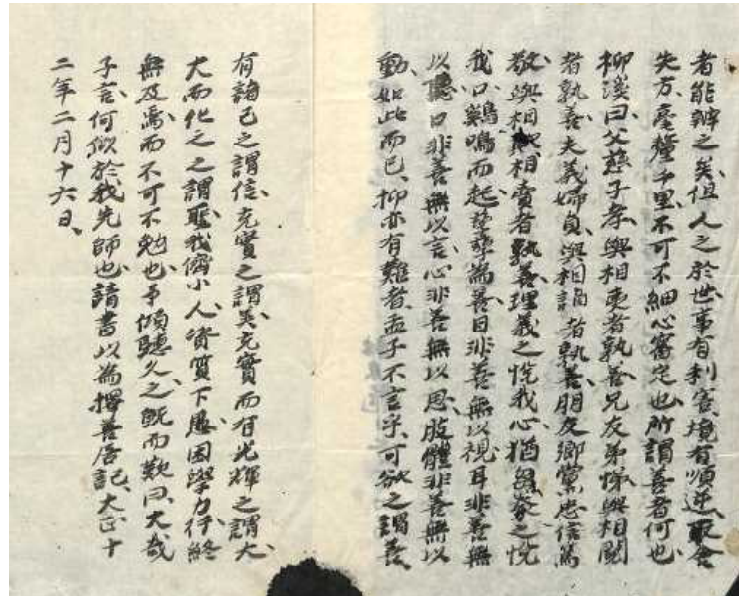 者能辨之矣、但人之於世事有利害、境有順逆、取舍
失方、差釐千里、不可不細心審定也、所謂善者何也、
柳溪曰、父慈子孝、與相夷者孰善、兄友弟悌、與相鬩
者孰善、夫義婦貞、與相謫者孰善、朋友鄉黨忠信篤
敬、與相欺相賣者孰善、理義之悅我心、猶芻豢之悅
我口、鷄鳴而起、孳孳為善、目非善無以視、耳非善無
以聽、口非善無以言、心非善無以思、肢體非善無以
動、如此而已、抑亦有難者、孟子不言乎、可欲之謂善、
有諸己之謂信、充實之謂美、充實而有光輝之謂大、
大而化之之謂聖、我儕小人、資質下愚、困學力行、終
無及焉、而不可不勉也、予傾聽久之、既而歎曰、大哉
子言、何似於我先師也、請書以為擇善居記、大正十
二年二月十六日、